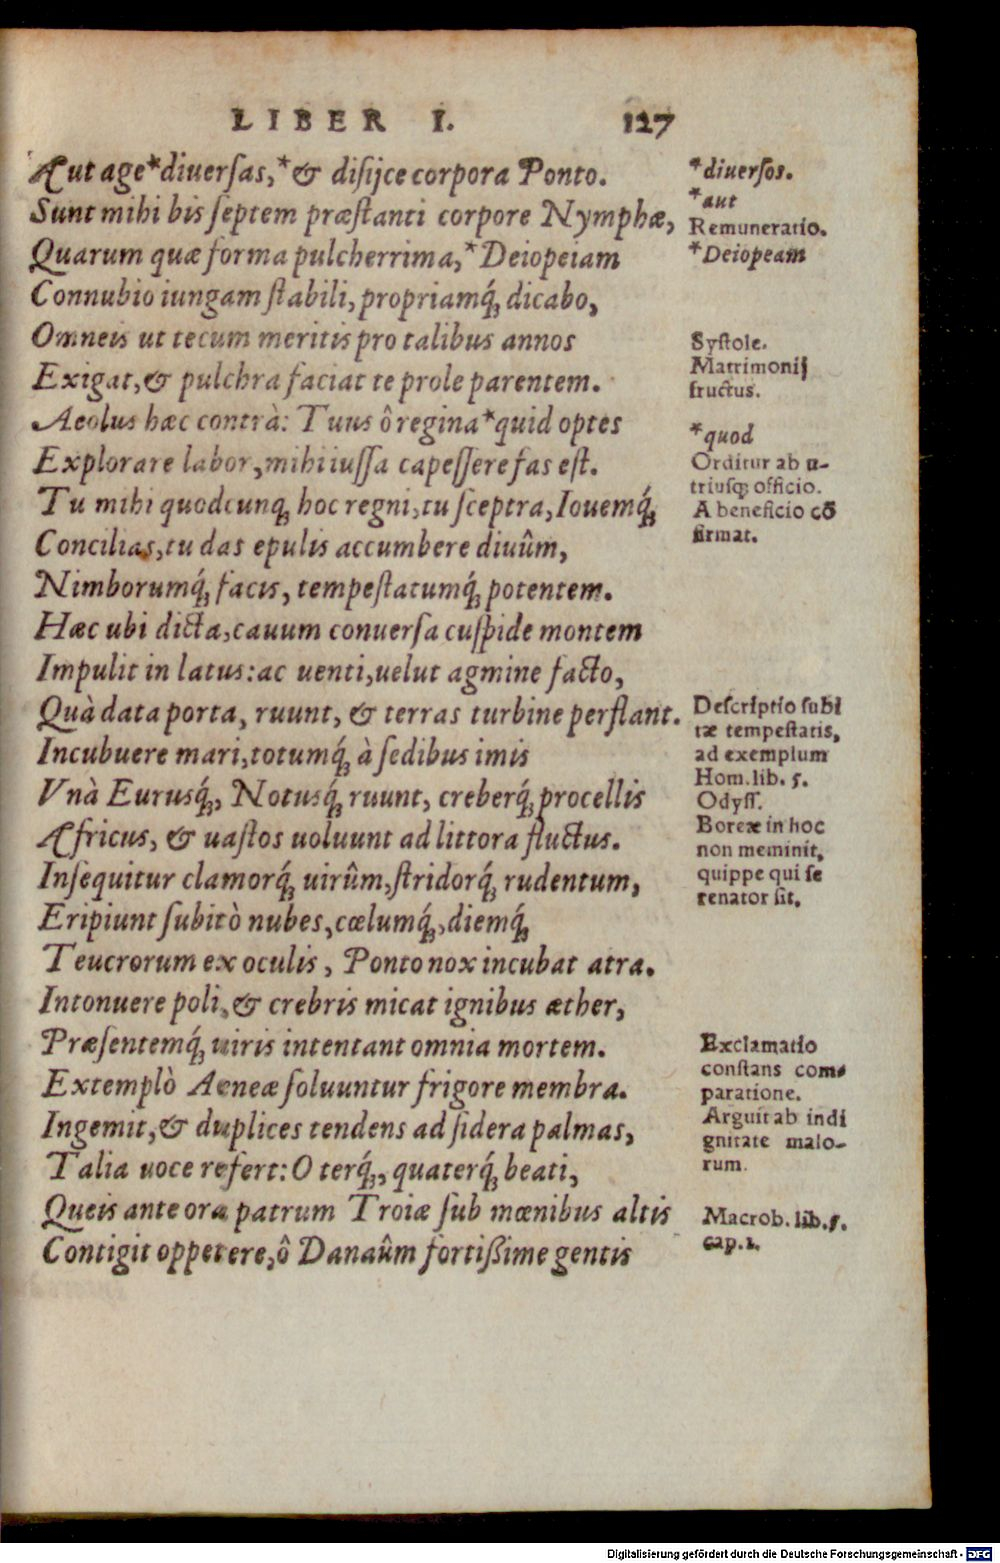 LIBER I. 127
Aut age *diuersas, *& disijce corpora Ponto.
Sunt mihi bis septem præstanti corpore Nymphæ,
Quarum quæ forma pulcherrima, *Deiopeiam
Connubio iungam stabili, propriamq́; dicabo,
Omneis ut tecum meritis pro talibus annos
Exigat, & pulchra faciat te prole parentem.
Aeolus hæc contrà: Tuus ô regina *quid optes
Explorare labor, mihi iussa capessere fas est.
Tu mihi quodcunq; hoc regni, tu sceptra, Iouemq́;
Concilias, tu das epulis accumbere diuûm,
Nimborumq́; facis, tempestatumq́; potentem.
Hæc ubi dicta, cauum conuersa cuspide montem
Impulit in latus: ac uenti, uelut agmine facto,
Quà data porta, ruunt, & terras turbine perflant.
Incubuere mari, totumq́; à sedibus imis
Vnà Eurusq́;, Notusq́; ruunt, creberq́; procellis
Africus, & uastos uoluunt ad littora fluctus.
Insequitur clamorq́; uirûm, stridorq́; rudentum,
Eripiunt subitò nubes, cœlumq́;, diemq́;
Teucrorum ex oculis, Ponto nox incubat atra.
Intonuere poli, & crebris micat ignibus æther,
Præsentemq́; uiris intentant omnia mortem.
Extemplò Aeneæ soluuntur frigore membra.
Ingemit, & duplices tendens ad sidera palmas,
Talia uoce refert: O terq́;, quaterq́; beati,
Queis ante ora patrum Troiæ sub mœnibus altis
Contigit oppetere, ô Danaûm fortißime gentis
*diuersos.
*aut
Remuneratio.
*Deiopeam
Systole.
Matrimonij
fructus.
*quod
Orditur ab u-
triusq; officio.
A beneficio cō
firmat.
Descriptio subi
tæ tempestatis,
ad exemplum
Hom. lib. 5.
Odyss.
Boreæ in hoc
non meminit,
quippe qui se
renator sit.
Exclamatio
constans com-
paratione.
Arguit ab indi
gnitate malo-
rum.
Macrob. lib. 5.
cap. 1.
Digitalisierung gefördert durch die Deutsche Forschungsgemeinschaft - DFG